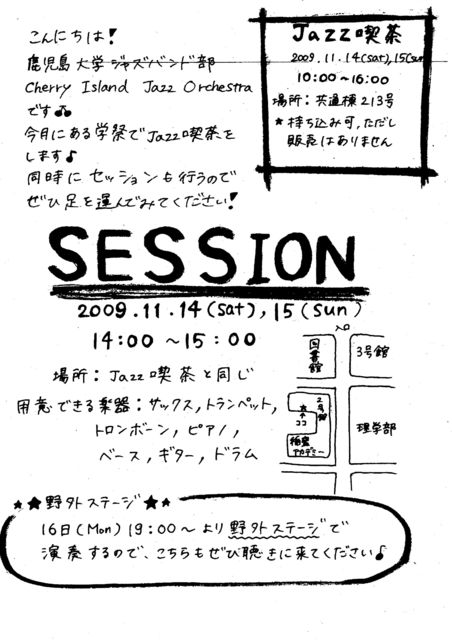 こんにちは!
鹿児島大学ジャズバンド部
Cherry Island Jazz Orchestra
です
今月にある学祭でJazz喫茶を
します♪
同時にセッションも行うので
ぜひ足を運んでみてください!
Jazz喫茶
2009.11.14(sat),15(sun)
10:00~16:00
場所:共通棟213号
★持ち込み可,ただし
販売はありません
SESSION
2009.11.14(sat),15(sun)
14:00~15:00
場所:Jazz喫茶と同じ
用意できる楽器:サックス,トランペット,
トロンボーン,ピアノ,
ベース,ギター,ドラム
入口
図書館
3号館
2号館
★
↑
ココ
稲盛
アカデミー
理学部
★★野外ステージ★★
16日(Mon)19:00~より野外ステージで
演奏するので、こちらもぜひ聴きに来てください♪